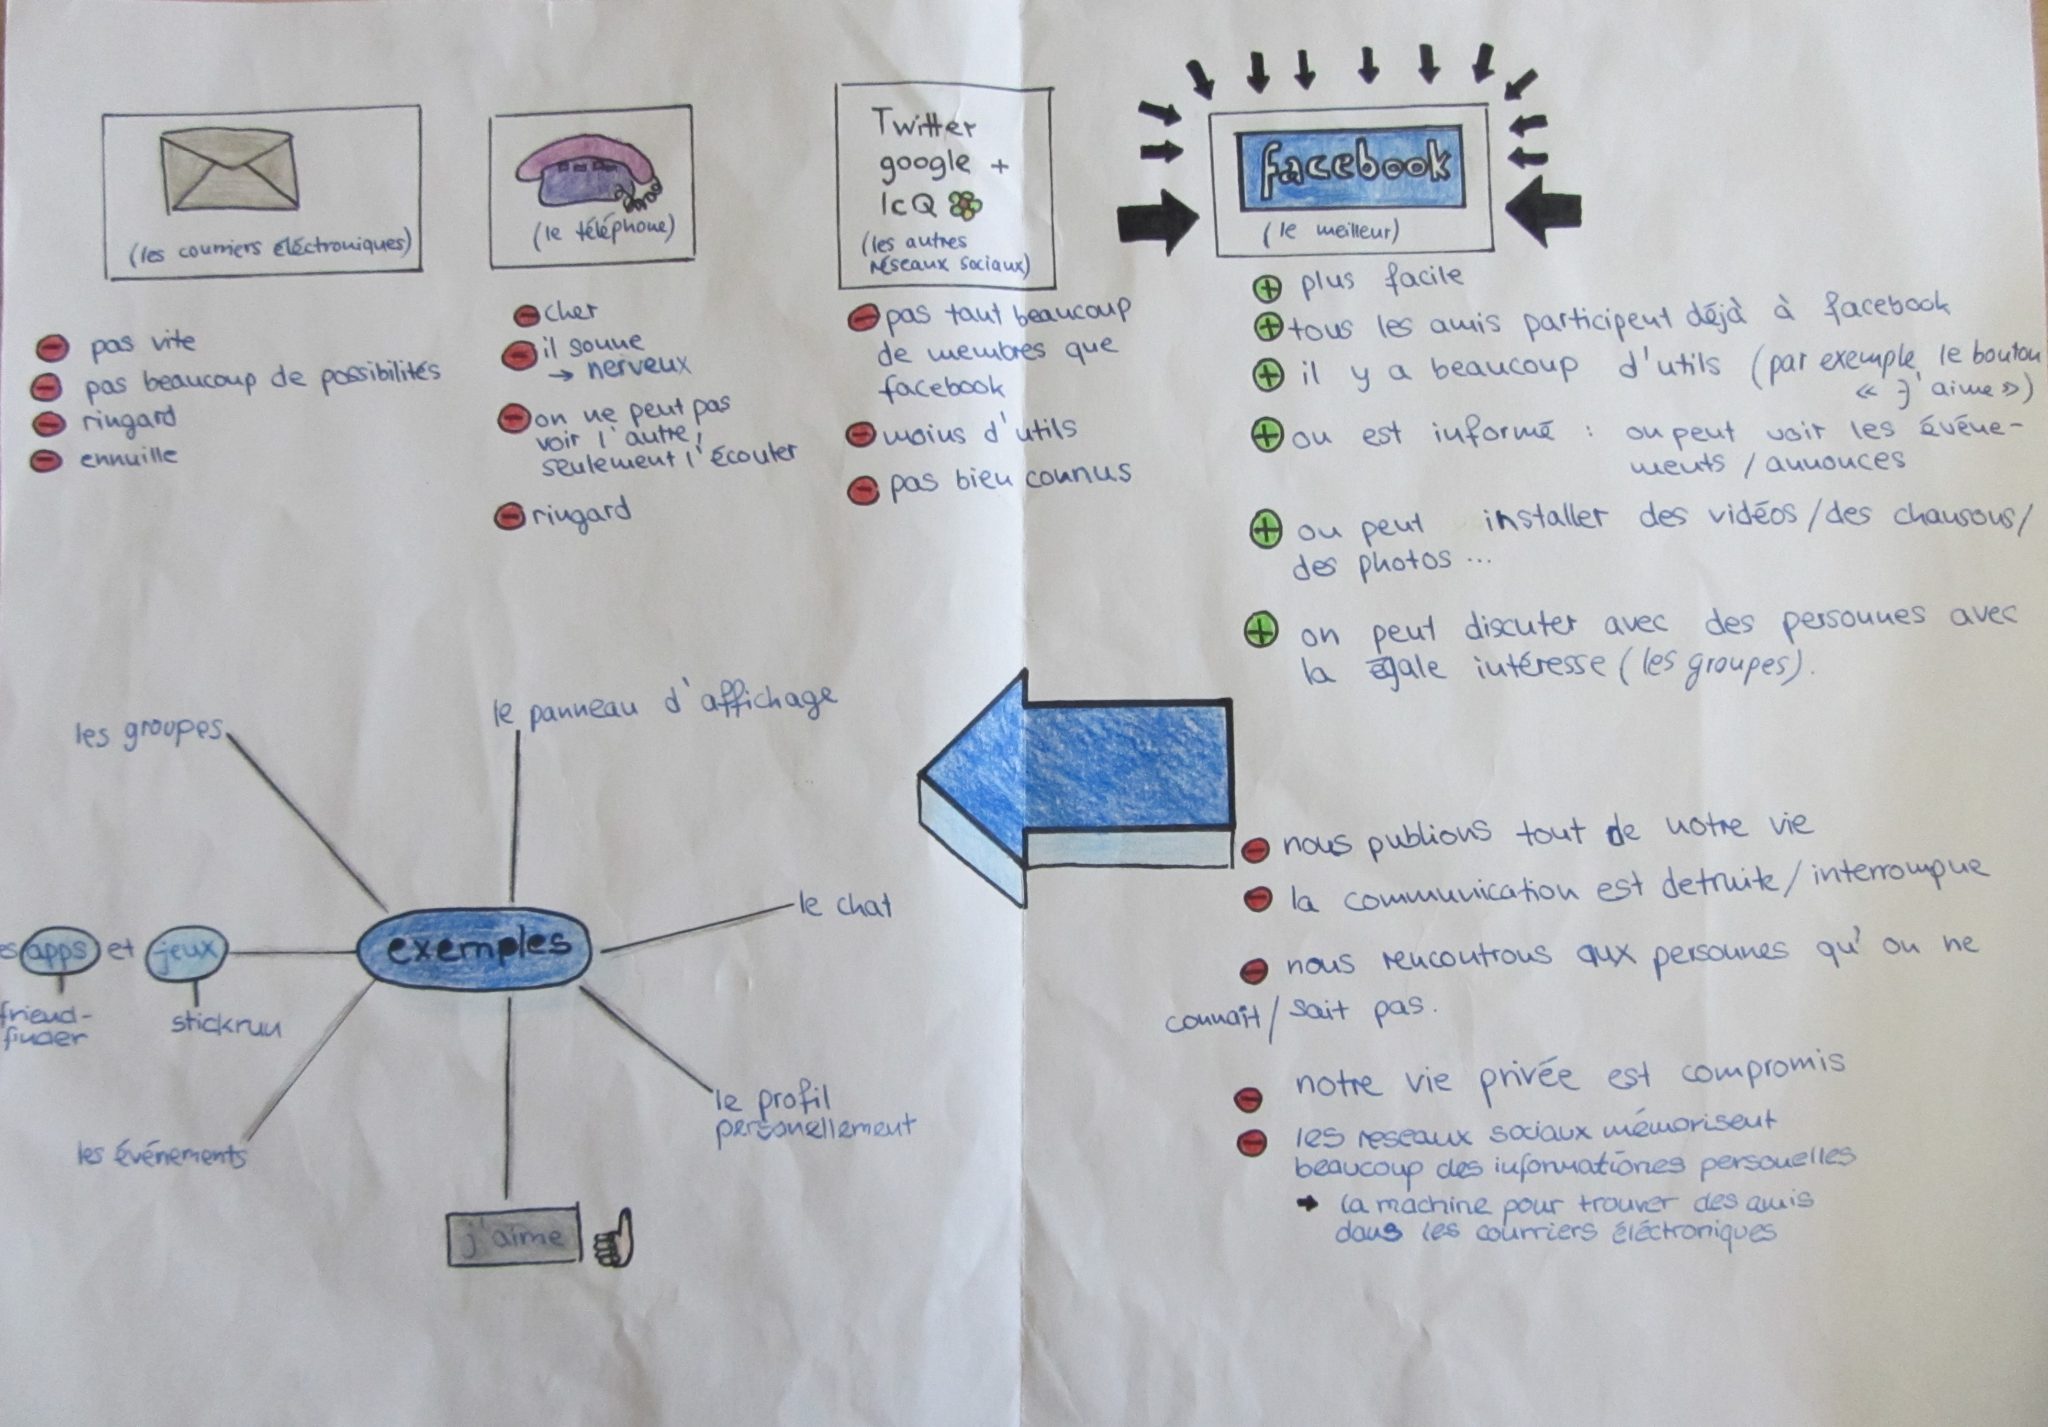 (les courriers éléctroniques)
- pas vite
- pas beaucoup de possibilités
- ringard
- ennuille
(le téléphone)
- cher
- il sonne
→ nerveux
- on ne peut pas
voir l'autre,
seulement l'écouter
- ringard
Twitter
google +
IcQ
(les autres
réseaux sociaux)
- pas taut beaucoup
de membres que
facebook
- moins d'utils
- pas bien connus
facebook
(le meilleur)
+ plus facile
+ tous les amis participent déjà à facebook
+ il y a beaucoup d'utils (par exemple le bouton
« J'aime »)
+ on est informé : on peut voir les événe-
ments / annonces
+ on peut installer des vidéos / des chansons /
des photos ...
+ on peut discuter avec des personnes avec
la égale intéresse (les groupes).
- nous publions tout de notre vie
- la communication est detruite / interrompue
- nous rencontrons aux personnes qu'on ne
connaît / sait pas.
- notre vie privée est compromis
- les reseaux sociaux mémorisent
beaucoup des informationes personelles
→ la machine pour trouver des amis
dans les courriers éléctroniques
exemples
les groupes
le panneau d'affichage
le chat
le profil
personellement
j'aime
les événements
es apps et jeux
friend-
finder
stickrun